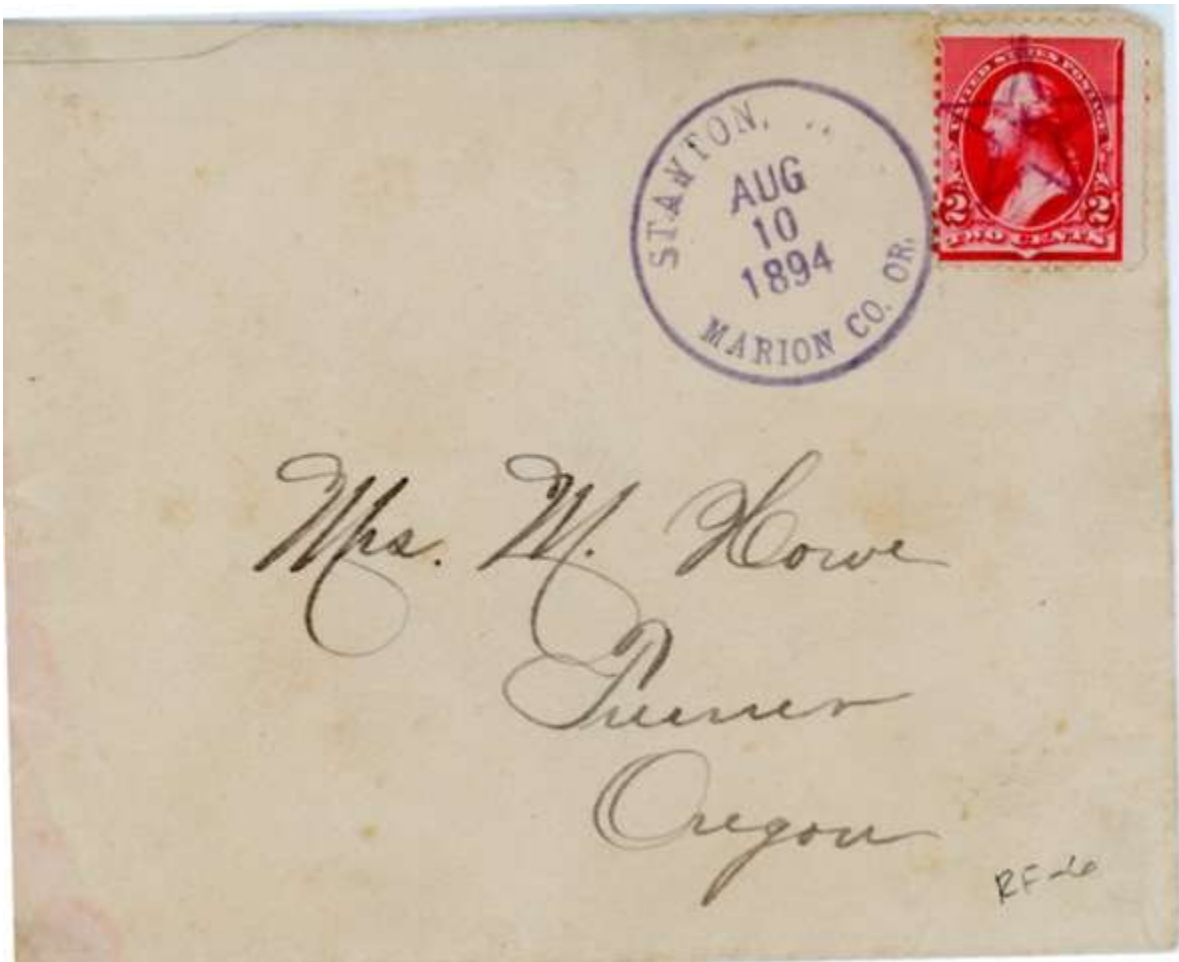 STAYTON,
AUG
10
1894
MARION CO. OR.
UNITED STATES POSTAGE
2 2
TWO CENTS
Mrs. M. Howe
Turner
Oregon
RF-6